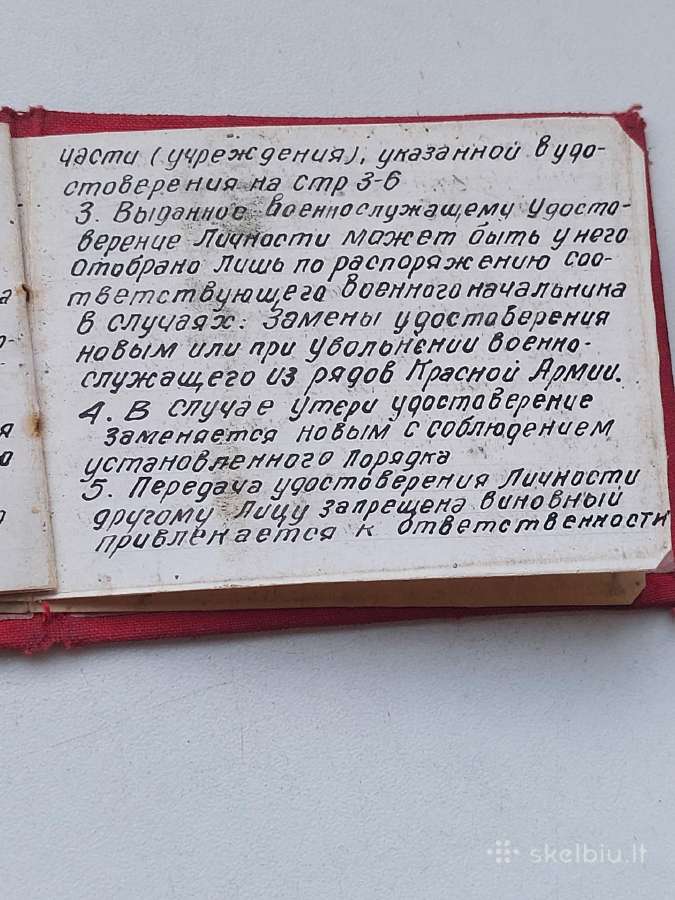 части (учреждения), указанной в удо-
стоверения на стр 3-6
3. Выданное военнослужащему Удосто-
верение Личности мажет быть у него
отобрано лишь по распоряжению соо-
тветствующего военного начальника
в случаях: Замены удостоверения
новым или при увольнении военно-
служащего из рядов Красной Армии.
4. В случае утери удостоверение
Заменяется новым с соблюдением
установленного порядка
5. Передача удостоверения Личности
другому Лицу запрещена виновный
привлекается к ответственности
а
я
skelbiu.lt